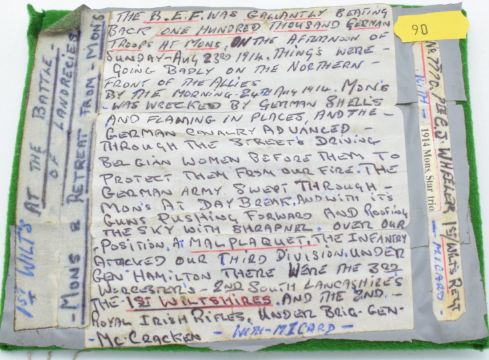 1ST WILTS
AT THE BATTLE -
OF - LANDRECIES
- MONS & RETREAT FROM - MONS
THE B.E.F. WAS GALLANTLY BEATING
BACK ONE HUNDRED THOUSAND GERMAN
TROOPS AT MONS, ON THE AFTERNOON OF
SUNDAY - AUG 23RD 1914. THINGS WERE -
GOING BADLY ON THE NORTHERN -
FRONT OF THE ALLIES
BY THE MORNING. 24TH AUG 1914. MONS
WAS WRECKED BY GERMAN SHELLS
AND FLAMING IN PLACES, AND THE -
GERMAN CAVALRY ADVANCED -
THROUGH THE STREETS DRIVING
BELGIAN WOMEN BEFORE THEM TO
PROTECT THEM FROM OUR FIRE. THE
GERMAN ARMY SWEPT THROUGH -
MONS AT DAY BREAK, AND WITH ITS
GUNS PUSHING FORWARD AND ROOFING
THE SKY WITH SHRAPNEL. OVER OUR
- POSITION, AT MALPLAQUET, THE INFANTRY
ATTACKED OUR THIRD DIVISION, UNDER
GEN HAMILTON THERE WERE THE 3RD
WORCESTER'S - 2ND SOUTH LANCASHIRES
THE 1ST WILTSHIRES. AND THE 2ND. -
ROYAL IRISH RIFLES, UNDER BRIG-GEN-
MC CRACKEN - WITH - M I CARD -
90
WHEELER 1ST WILTS REGT
WITH - M I CARD -
1914 Mons Star trio